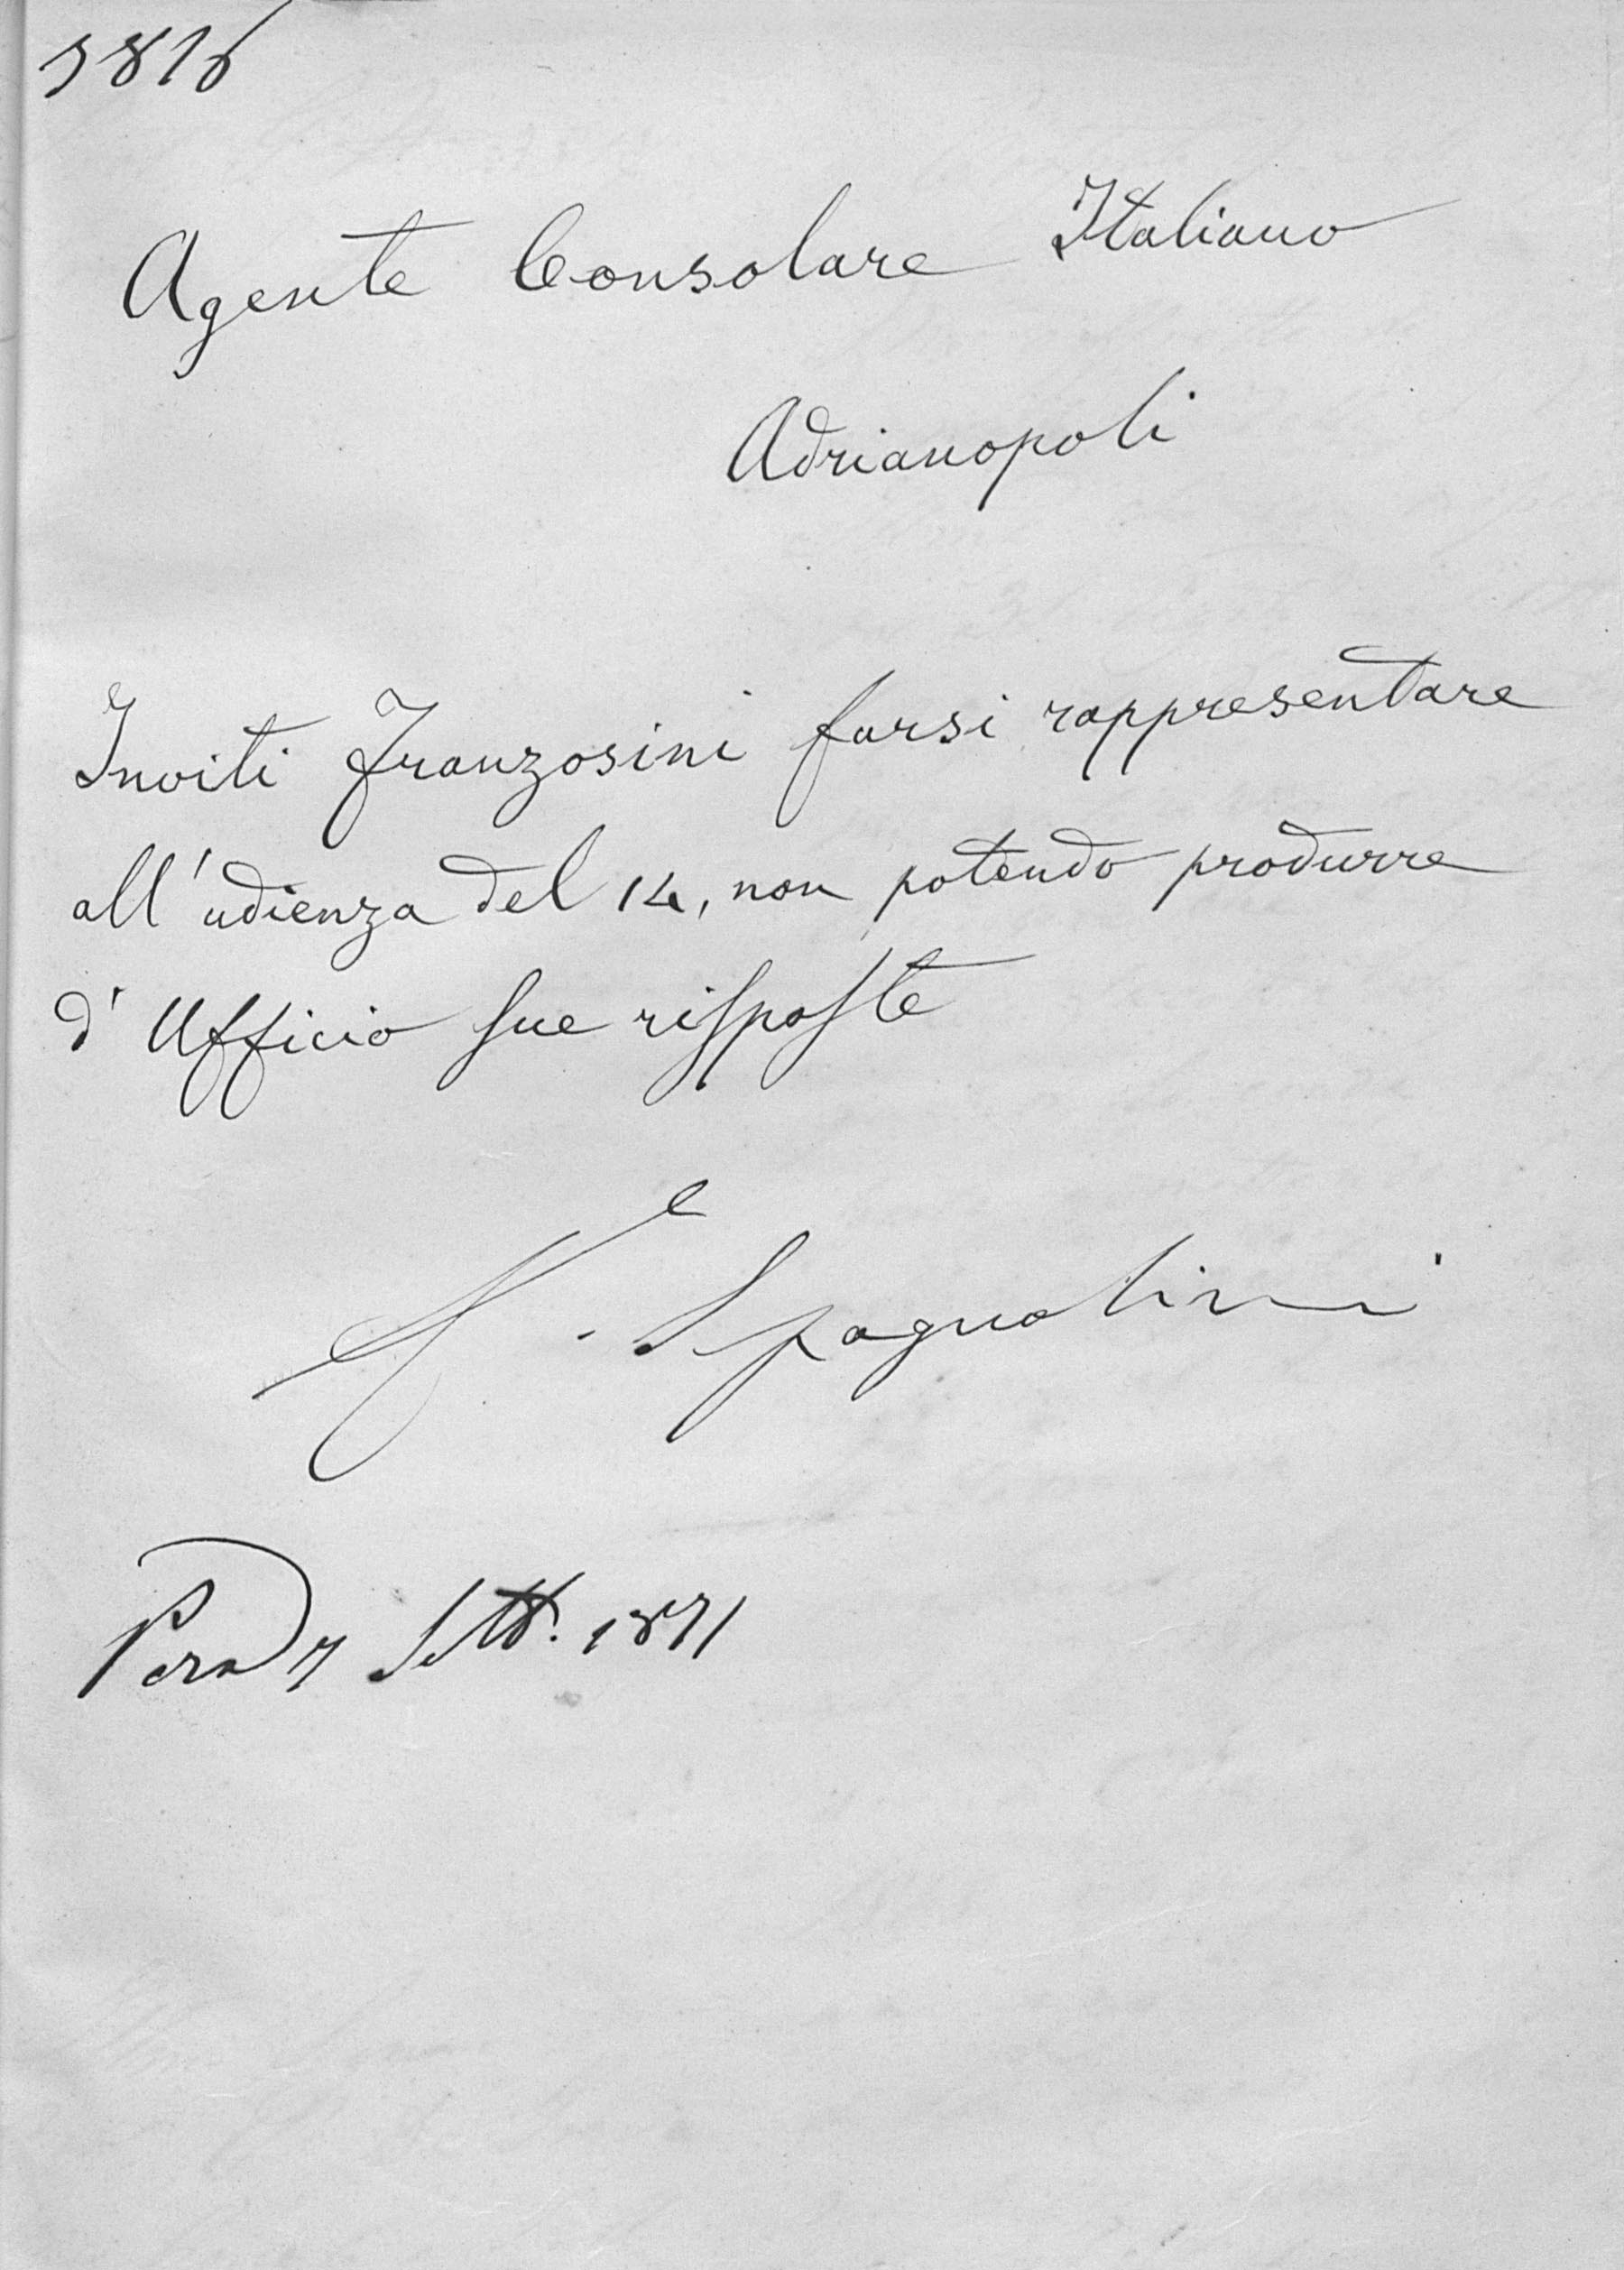 3816
Agente Consolare Italiano
Adrianopoli
Inviti Franzosini farsi rappresentare
all'udienza del 14, non potendo produrre
d'Ufficio sue risposte
Spagnolini
Pera 7 Sett. 1871